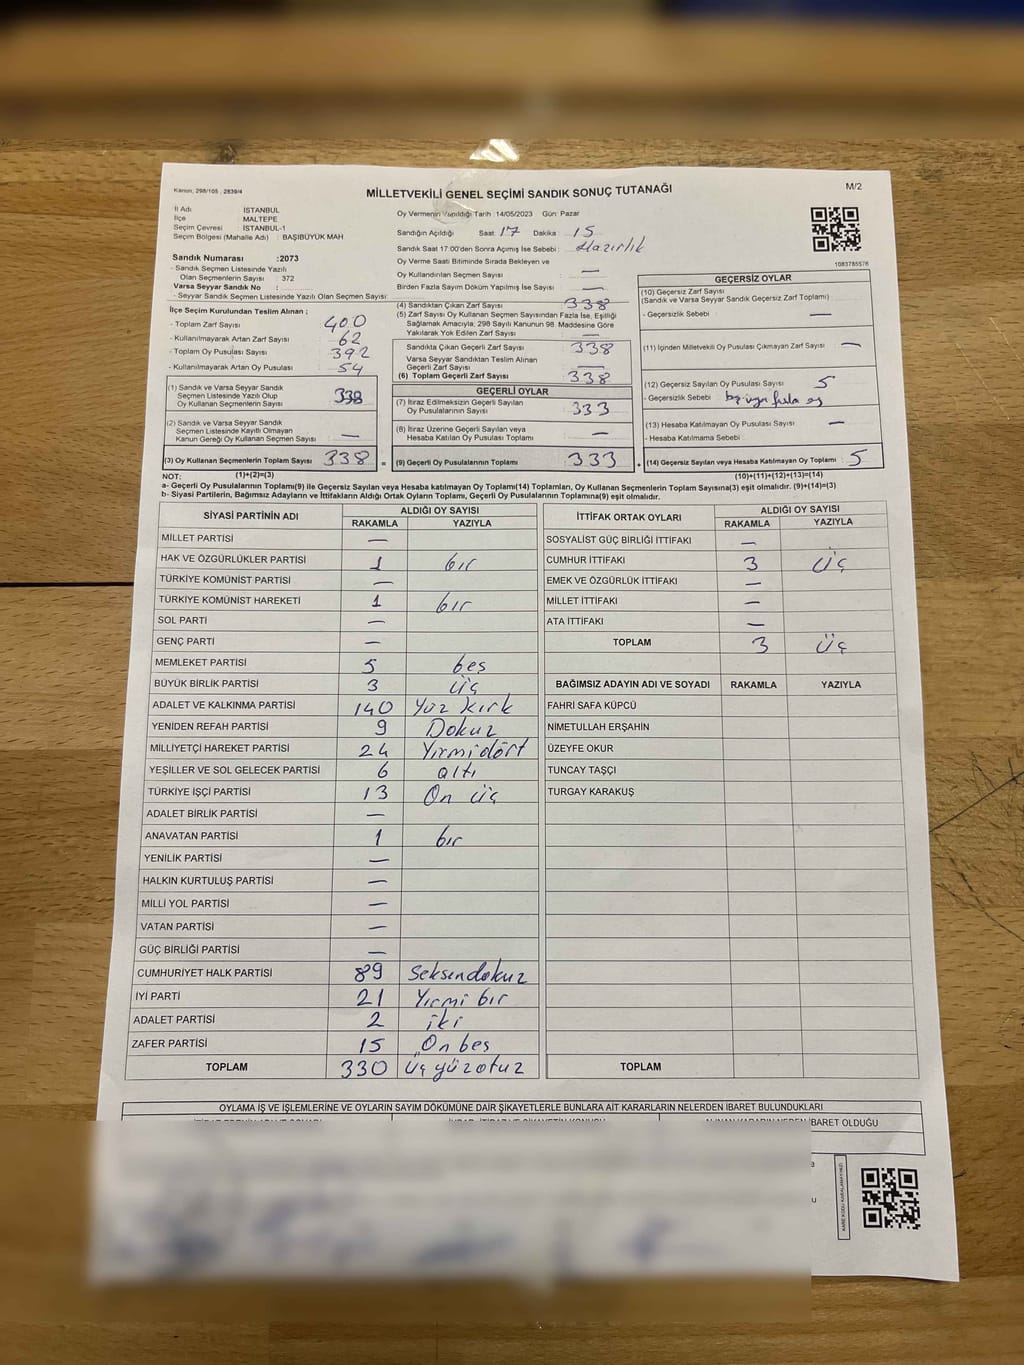 Kanun; 298/105 , 2839/4
MİLLETVEKİLİ GENEL SEÇİMİ SANDIK SONUÇ TUTANAĞI
M/2
İl Adı İSTANBUL
İlçe MALTEPE
Seçim Çevresi : İSTANBUL-1
Seçim Bölgesi (Mahalle Adı) : BAŞIBÜYÜK MAH
Sandık Numarası :2073
- Sandık Seçmen Listesinde Yazılı
Olan Seçmenlerin Sayısı : 372
Varsa Seyyar Sandık No :
- Seyyar Sandık Seçmen Listesinde Yazılı Olan Seçmen Sayısı:
İlçe Seçim Kurulundan Teslim Alınan ;
- Toplam Zarf Sayısı 400
- Kullanılmayarak Artan Zarf Sayısı 62
- Toplam Oy Pusulası Sayısı 392
- Kullanılmayarak Artan Oy Pusulası 54
(1) Sandık ve Varsa Seyyar Sandık
Seçmen Listesinde Yazılı Olup
Oy Kullanan Seçmenlerin Sayısı 338
(2) Sandık ve Varsa Seyyar Sandık
Seçmen Listesinde Kayıtlı Olmayan
Kanun Gereği Oy Kullanan Seçmen Sayısı —
(3) Oy Kullanan Seçmenlerin Toplam Sayısı 338
(1)+(2)=(3)
Oy Vermenin Yapıldığı Tarih :14/05/2023 Gün: Pazar
Sandığın Açıldığı Saat: 17 Dakika : 15
Sandık Saat 17:00'den Sonra Açımış İse Sebebi : Hazırlık
Oy Verme Saati Bitiminde Sırada Bekleyen ve
Oy Kullandırılan Seçmen Sayısı : —
Birden Fazla Sayım Döküm Yapılmış İse Sayısı : —
(4) Sandıktan Çıkan Zarf Sayısı 338
(5) Zarf Sayısı Oy Kullanan Seçmen Sayısından Fazla İse, Eşitliği
Sağlamak Amacıyla; 298 Sayılı Kanunun 98. Maddesine Göre
Yakılarak Yok Edilen Zarf Sayısı: —
Sandıkta Çıkan Geçerli Zarf Sayısı 338
Varsa Seyyar Sandıktan Teslim Alınan
Geçerli Zarf Sayısı —
(6) Toplam Geçerli Zarf Sayısı 338
GEÇERLİ OYLAR
(7) İtiraz Edilmeksizin Geçerli Sayılan
Oy Pusulalarının Sayısı 333
(8) İtiraz Üzerine Geçerli Sayılan veya
Hesaba Katılan Oy Pusulası Toplamı —
= (9) Geçerli Oy Pusulalarının Toplamı 333
1083785576
GEÇERSİZ OYLAR
(10) Geçersiz Zarf Sayısı
(Sandık ve Varsa Seyyar Sandık Geçersiz Zarf Toplamı)
- Geçersiz Sebebi : —
(11) İçinden Milletvekili Oy Pusulası Çıkmayan Zarf Sayısı —
(12) Geçersiz Sayılan Oy Pusulası Sayısı 5
- Geçersizlik Sebebi
(13) Hesaba Katılmayan Oy Pusulası Sayısı —
- Hesaba Katılmama Sebebi :
+ (14) Geçersiz Sayılan veya Hesaba Katılmayan Oy Toplamı 5
(10)+(11)+(12)+(13)=(14)
NOT:
a- Geçerli Oy Pusulalarının Toplamı(9) ile Geçersiz Sayılan veya Hesaba Katılmayan Oy Toplamı(14) Toplamları, Oy Kullanan Seçmenlerin Toplam Sayısına(3) eşit olmalıdır. (9)+(14)=(3)
b- Siyasi Partilerin, Bağımsız Adayların ve İttifakların Aldığı Ortak Oyların Toplamı, Geçerli Oy Pusulalarının Toplamına(9) eşit olmalıdır.
SİYASİ PARTİNİN ADI ALDIĞI OY SAYISI
RAKAMLA YAZIYLA
MİLLET PARTİSİ —
HAK VE ÖZGÜRLÜKLER PARTİSİ 1 bir
TÜRKİYE KOMÜNİST PARTİSİ —
TÜRKİYE KOMÜNİST HAREKETİ 1 bir
SOL PARTİ —
GENÇ PARTİ —
MEMLEKET PARTİSİ 5 beş
BÜYÜK BİRLİK PARTİSİ 3 üç
ADALET VE KALKINMA PARTİSİ 140 Yüz kırk
YENİDEN REFAH PARTİSİ 9 Dokuz
MİLLİYETÇİ HAREKET PARTİSİ 24 Yirmidört
YEŞİLLER VE SOL GELECEK PARTİSİ 6 altı
TÜRKİYE İŞÇİ PARTİSİ 13 On üç
ADALET BİRLİK PARTİSİ —
ANAVATAN PARTİSİ 1 bir
YENİLİK PARTİSİ —
HALKIN KURTULUŞ PARTİSİ —
MİLLİ YOL PARTİSİ —
VATAN PARTİSİ —
GÜÇ BİRLİĞİ PARTİSİ —
CUMHURİYET HALK PARTİSİ 89 Seksendokuz
İYİ PARTİ 21 Yirmi bir
ADALET PARTİSİ 2 iki
ZAFER PARTİSİ 15 Onbeş
TOPLAM 330 Üçyüzotuz
İTTİFAK ORTAK OYLARI ALDIĞI OY SAYISI
RAKAMLA YAZIYLA
SOSYALİST GÜÇ BİRLİĞİ İTTİFAKI —
CUMHUR İTTİFAKI 3 Üç
EMEK VE ÖZGÜRLÜK İTTİFAKI —
MİLLET İTTİFAKI —
ATA İTTİFAKI —
TOPLAM 3 Üç
BAĞIMSIZ ADAYIN ADI VE SOYADI RAKAMLA YAZIYLA
FAHRİ SAFA KÜPCÜ
NİMETULLAH ERŞAHİN
ÜZEYFE OKUR
TUNCAY TAŞÇI
TURGAY KARAKUŞ
TOPLAM
OYLAMA İŞ VE İŞLEMLERİNE VE OYLARIN SAYIM DÖKÜMÜNE DAİR ŞİKAYETLERLE BUNLARA AİT KARARLARIN NELERDEN İBARET BULUNDUKLARI
İBARET OLDUĞU
KARE KODU KARALAMAYINIZ!